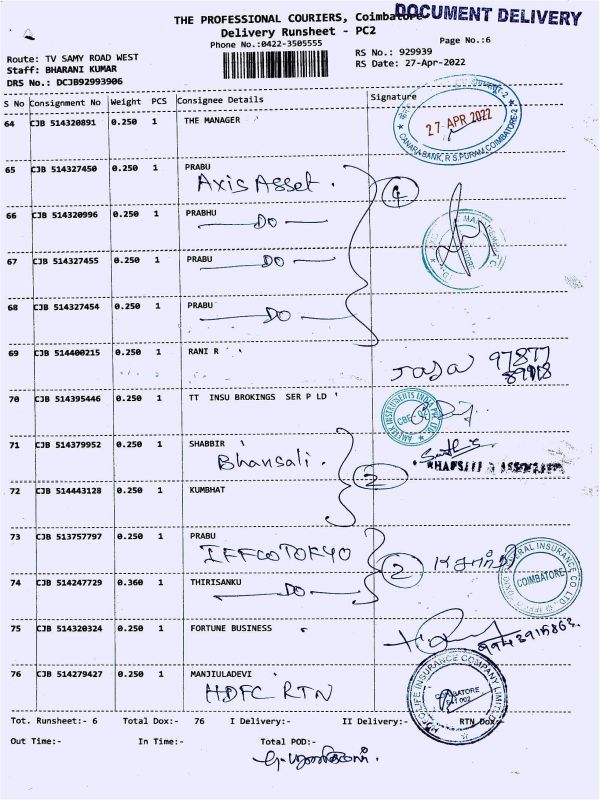 DOCUMENT DELIVERY
THE PROFESSIONAL COURIERS, Coimbatore
Delivery Runsheet - PC2
Phone No.:0422-3505555
Page No.:6
Route: TV SAMY ROAD WEST
RS No.: 929939
Staff: BHARANI KUMAR
RS Date: 27-Apr-2022
DRS No.: DCJB92993906
S No Consignment No Weight PCS Consignee Details Signature
64 CJB 514320891 0.250 1 THE MANAGER
27 APR 2022
CANARA BANK, R S PURAM, COIMBATORE-2
65 CJB 514327450 0.250 1 PRABU
Axis Asset. 4
66 CJB 514320996 0.250 1 PRABHU
DO
67 CJB 514327455 0.250 1 PRABU
DO
68 CJB 514327454 0.250 1 PRABU
DO
69 CJB 514400215 0.250 1 RANI R
97877
89118
70 CJB 514395446 0.250 1 TT INSU BROKINGS SER P LD
71 CJB 514379952 0.250 1 SHABBIR
Bhansali. 2
72 CJB 514443128 0.250 1 KUMBHAT
73 CJB 513757797 0.250 1 PRABU
IFFCO TOKYO 2
74 CJB 514247729 0.360 1 THIRISANKU
DO
COIMBATORE
75 CJB 514320324 0.250 1 FORTUNE BUSINESS
76 CJB 514279427 0.250 1 MANJIULADEVI
HDFC RTN
LIFE INSURANCE COMPANY LIMITED
Tot. Runsheet:- 6 Total Dox:- 76 I Delivery:- II Delivery:- RTN Dox:-
Out Time:- In Time:- Total POD:-